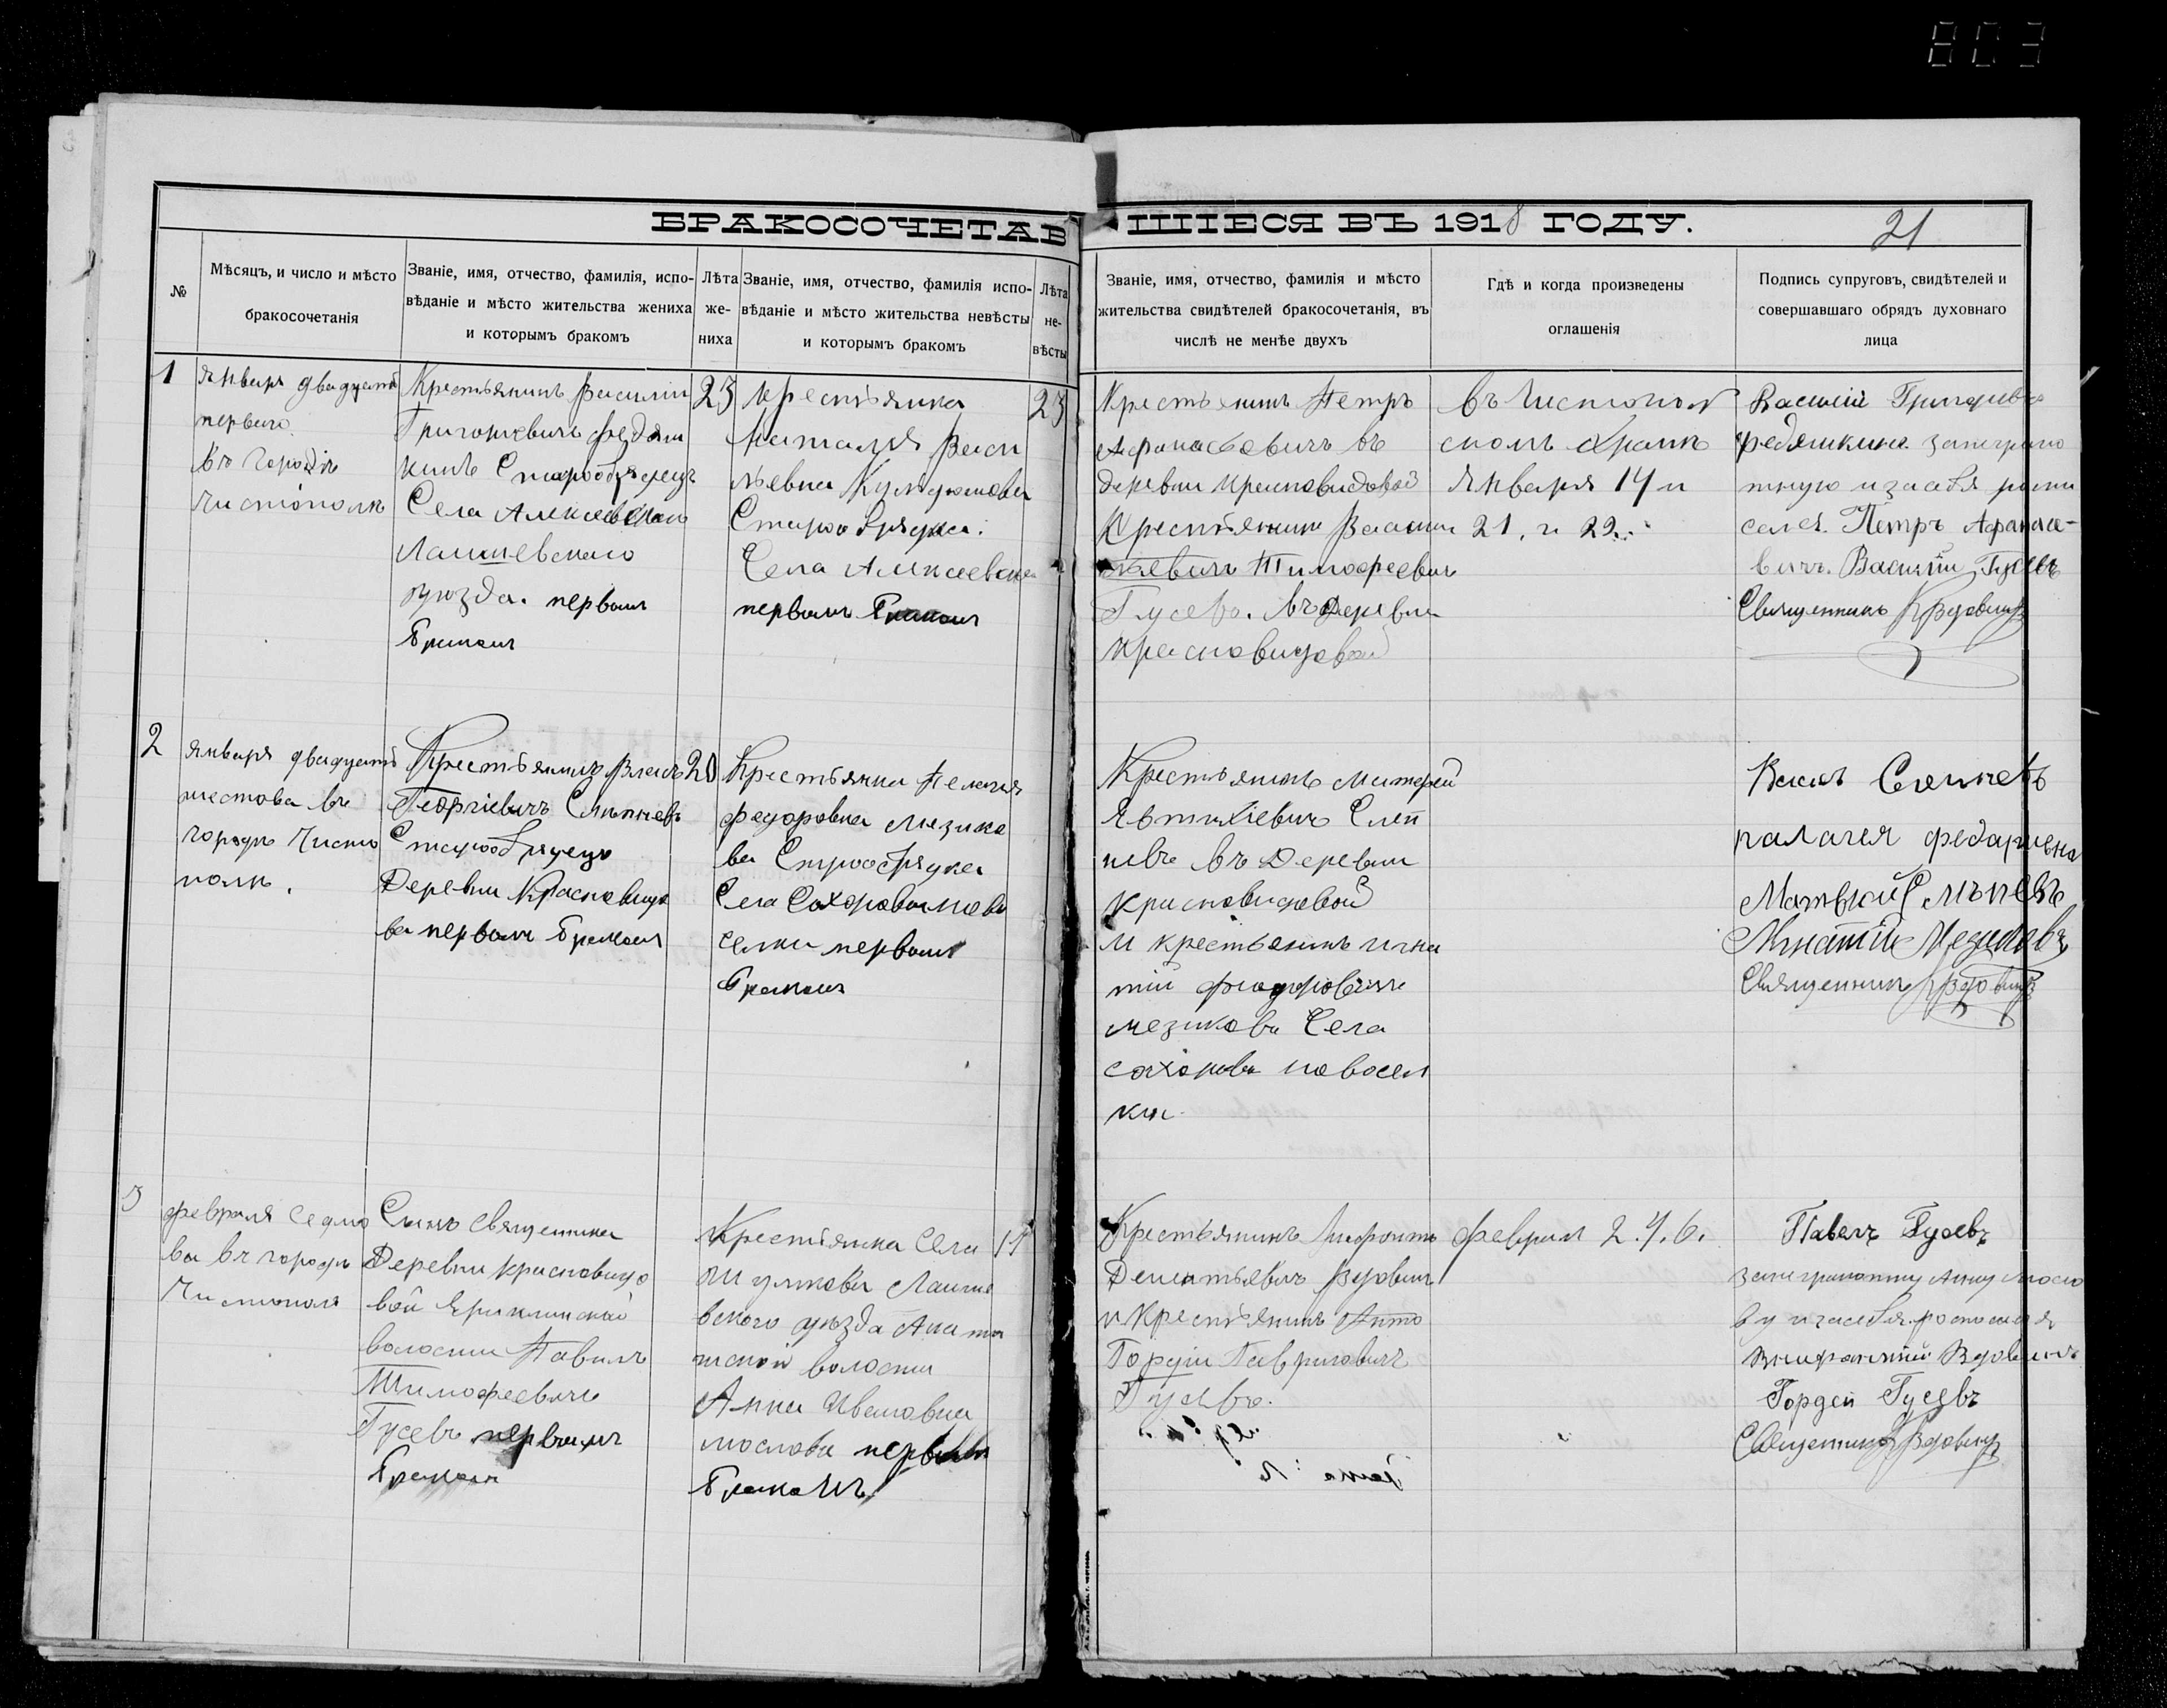 803
БРАКОСОЧЕТАВШІЕСЯ ВЪ 1918 ГОДУ.
21
№
Мѣсяцъ, и число и мѣсто
бракосочетанія
Званіе, имя, отчество, фамилія, испо-
вѣданіе и мѣсто жительства жениха
и которымъ бракомъ
Лѣта
же-
ниха
Званіе, имя, отчество, фамилія испо-
вѣданіе и мѣсто жительства невѣсты
и которымъ бракомъ
Лѣта
не-
вѣсты
Званіе, имя, отчество, фамилія и мѣсто
жительства свидѣтелей бракосочетанія, въ
числѣ не менѣе двухъ
Гдѣ и когда произведены
оглашенія
Подпись супруговъ, свидѣтелей и
совершавшаго обрядъ духовнаго
лица
1
Января двадцать
первого
въ городѣ
Чистополѣ
Крестьянинъ Василий
Григорьевичъ Федяш
кинъ Старообрядецъ
Села Алексеевского
Лаишевского
уѣзда. первымъ
бракомъ
23
Крестьянка
Наталья Васи
льевна
Старообрядка.
Села Алексеевска
первымъ бракомъ
23
Крестьянинъ Петръ
Афонасьевичъ въ
деревни Красновидовой
Крестьянинъ Васили
евичъ Тимофеевич
Гусевъ. въ деревни
Красновидовой
въ Чистопол
скомъ храмѣ
Января 14 и
21, и 22.
Василій Григорьев
Федяшкинъ за неграмо
тную и за себя роспи
сался. Петръ Афанасе-
вичъ. Василій Гусевъ
Священникъ Вдовинъ
2
Января двадцать
шестова въ
городѣ Чисто
полѣ.
Крестьянинъ Власъ
Георгіевичъ Слѣпневъ
Старообрядецъ
Деревни Красновидо
ва первымъ бракомъ
20
Крестьянка Пелагея
Федоровна Мезико
ва Старообрядка
Села Сахарова Ново
селки первымъ
бракомъ
Крестьянинъ Матфей
Евтихіевичъ Слеп
невъ въ Деревни
Красновидовой
и крестьянинъ Игна
тій Феодоровичъ
Мезиковъ Села
Сахарова Новосел
ки.
Власъ Слепневъ
палагея федаровна
Матвѣй Слѣпневъ
Игнатій Мезиковъ
Священникъ Вдовинъ
3
Февраля седмо
ва въ городѣ
Чистополѣ
Сынъ священника
Деревни Красновидо
вой Ерыклинской
волости Павелъ
Тимофеевичъ
Гусевъ первымъ
бракомъ
Крестьянка Села
Шумкова Лаише
вского уѣзда
волости
Анна Ивановна
Мослова первымъ
бракомъ
Крестьянинъ
Дементьевичъ Вдовинъ
и Крестьянинъ
Гордѣй Гавриловичъ
Гусевъ.
Февраля 2.4.6.
Павелъ Гусевъ
за неграмотну Анну Мосло
ву и за себя росписался
Вдовинъ
Гордей Гусевъ
Священникъ Вдовинъ